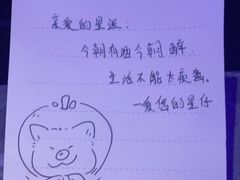 亲爱的星派：
今朝有酒今朝醉
生活不能太疲惫。
—爱你的星仔